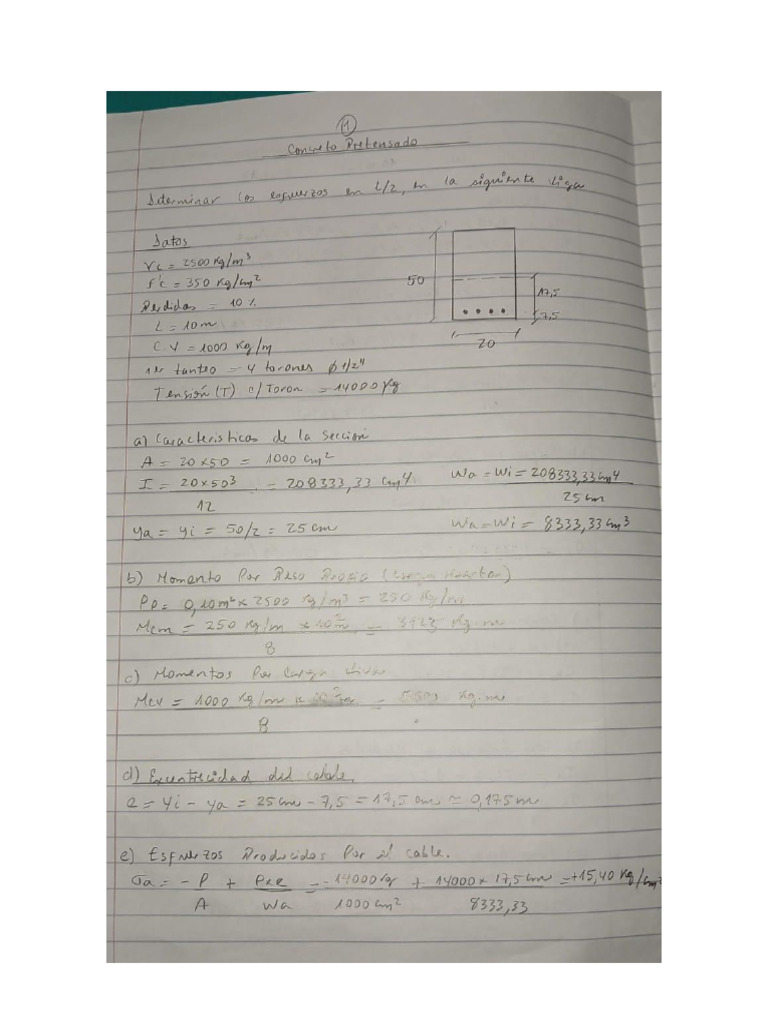 1
Concreto Pretensado
Determinar los esfuerzos en L/2, en la siguiente Viga
Datos
γc = 2500 Kg/m³
f'c = 350 Kg/cm²
Perdidas = 10 %
L = 10m
C.V = 1000 Kg/m
1er tanteo = 4 torones ϕ 1/2"
Tensión (T) c/Toron = 14000 Kg
50
17,5
7,5
20
a) Caracteristicas de la Sección
A = 20 x 50 = 1000 cm²
I = 20 x 50³ = 208333,33 cm4
12
Wa = Wi = 208333,33 cm4
25 cm
ya = yi = 50/2 = 25 cm
Wa = Wi = 8333,33 cm³
b) Momento Por Peso Propio (Carga Muerta)
Pp = 0,10m² x 2500 Kg/m³ = 250 Kg/m
Mcm = 250 Kg/m x 10² = 3125 Kg.m
8
c) Momentos Por Carga Viva
Mcv = 1000 Kg/m x = Kg.m
8
d) Excentricidad del cable.
e = yi - ya = 25cm - 7,5 = 17,5 cm ≈ 0,175m
e) Esfuerzos Producidos Por el cable.
σa = - P + Pxe = - 14000kg + 14000 x 17,5cm = +15,40 Kg/cm²
A Wa 1000 cm² 8333,33